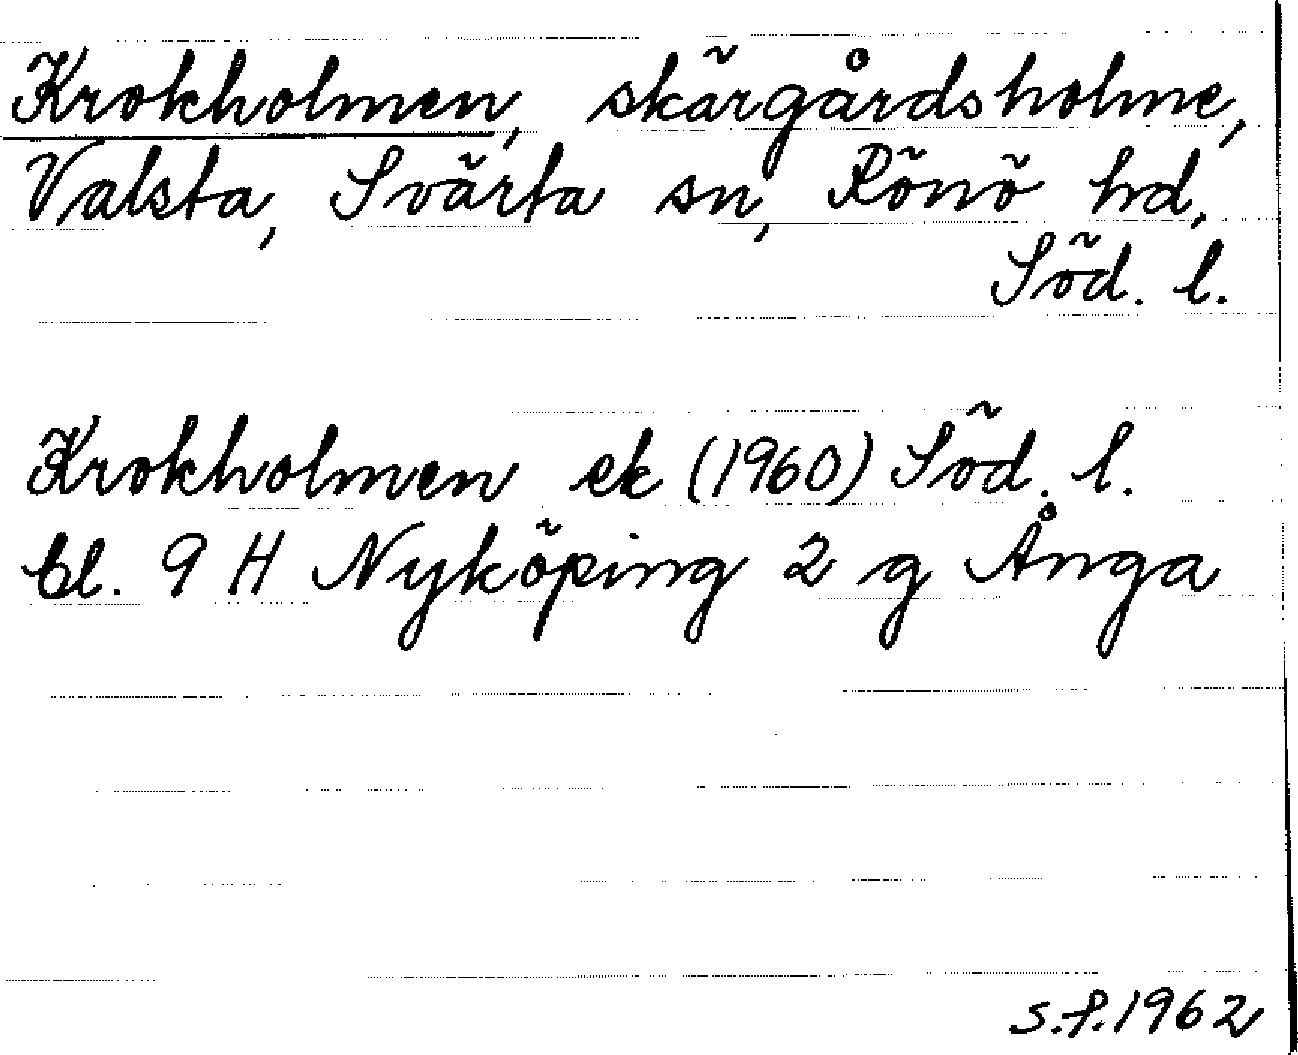 Krokholmen, skärgårdsholme,
Valsta, Svärta sn, Rönö hd,
Söd. l.
Krokholmen ek (1960) Söd. l.
bl. 9 H Nyköping 2 g Ånga
S.f. 1962